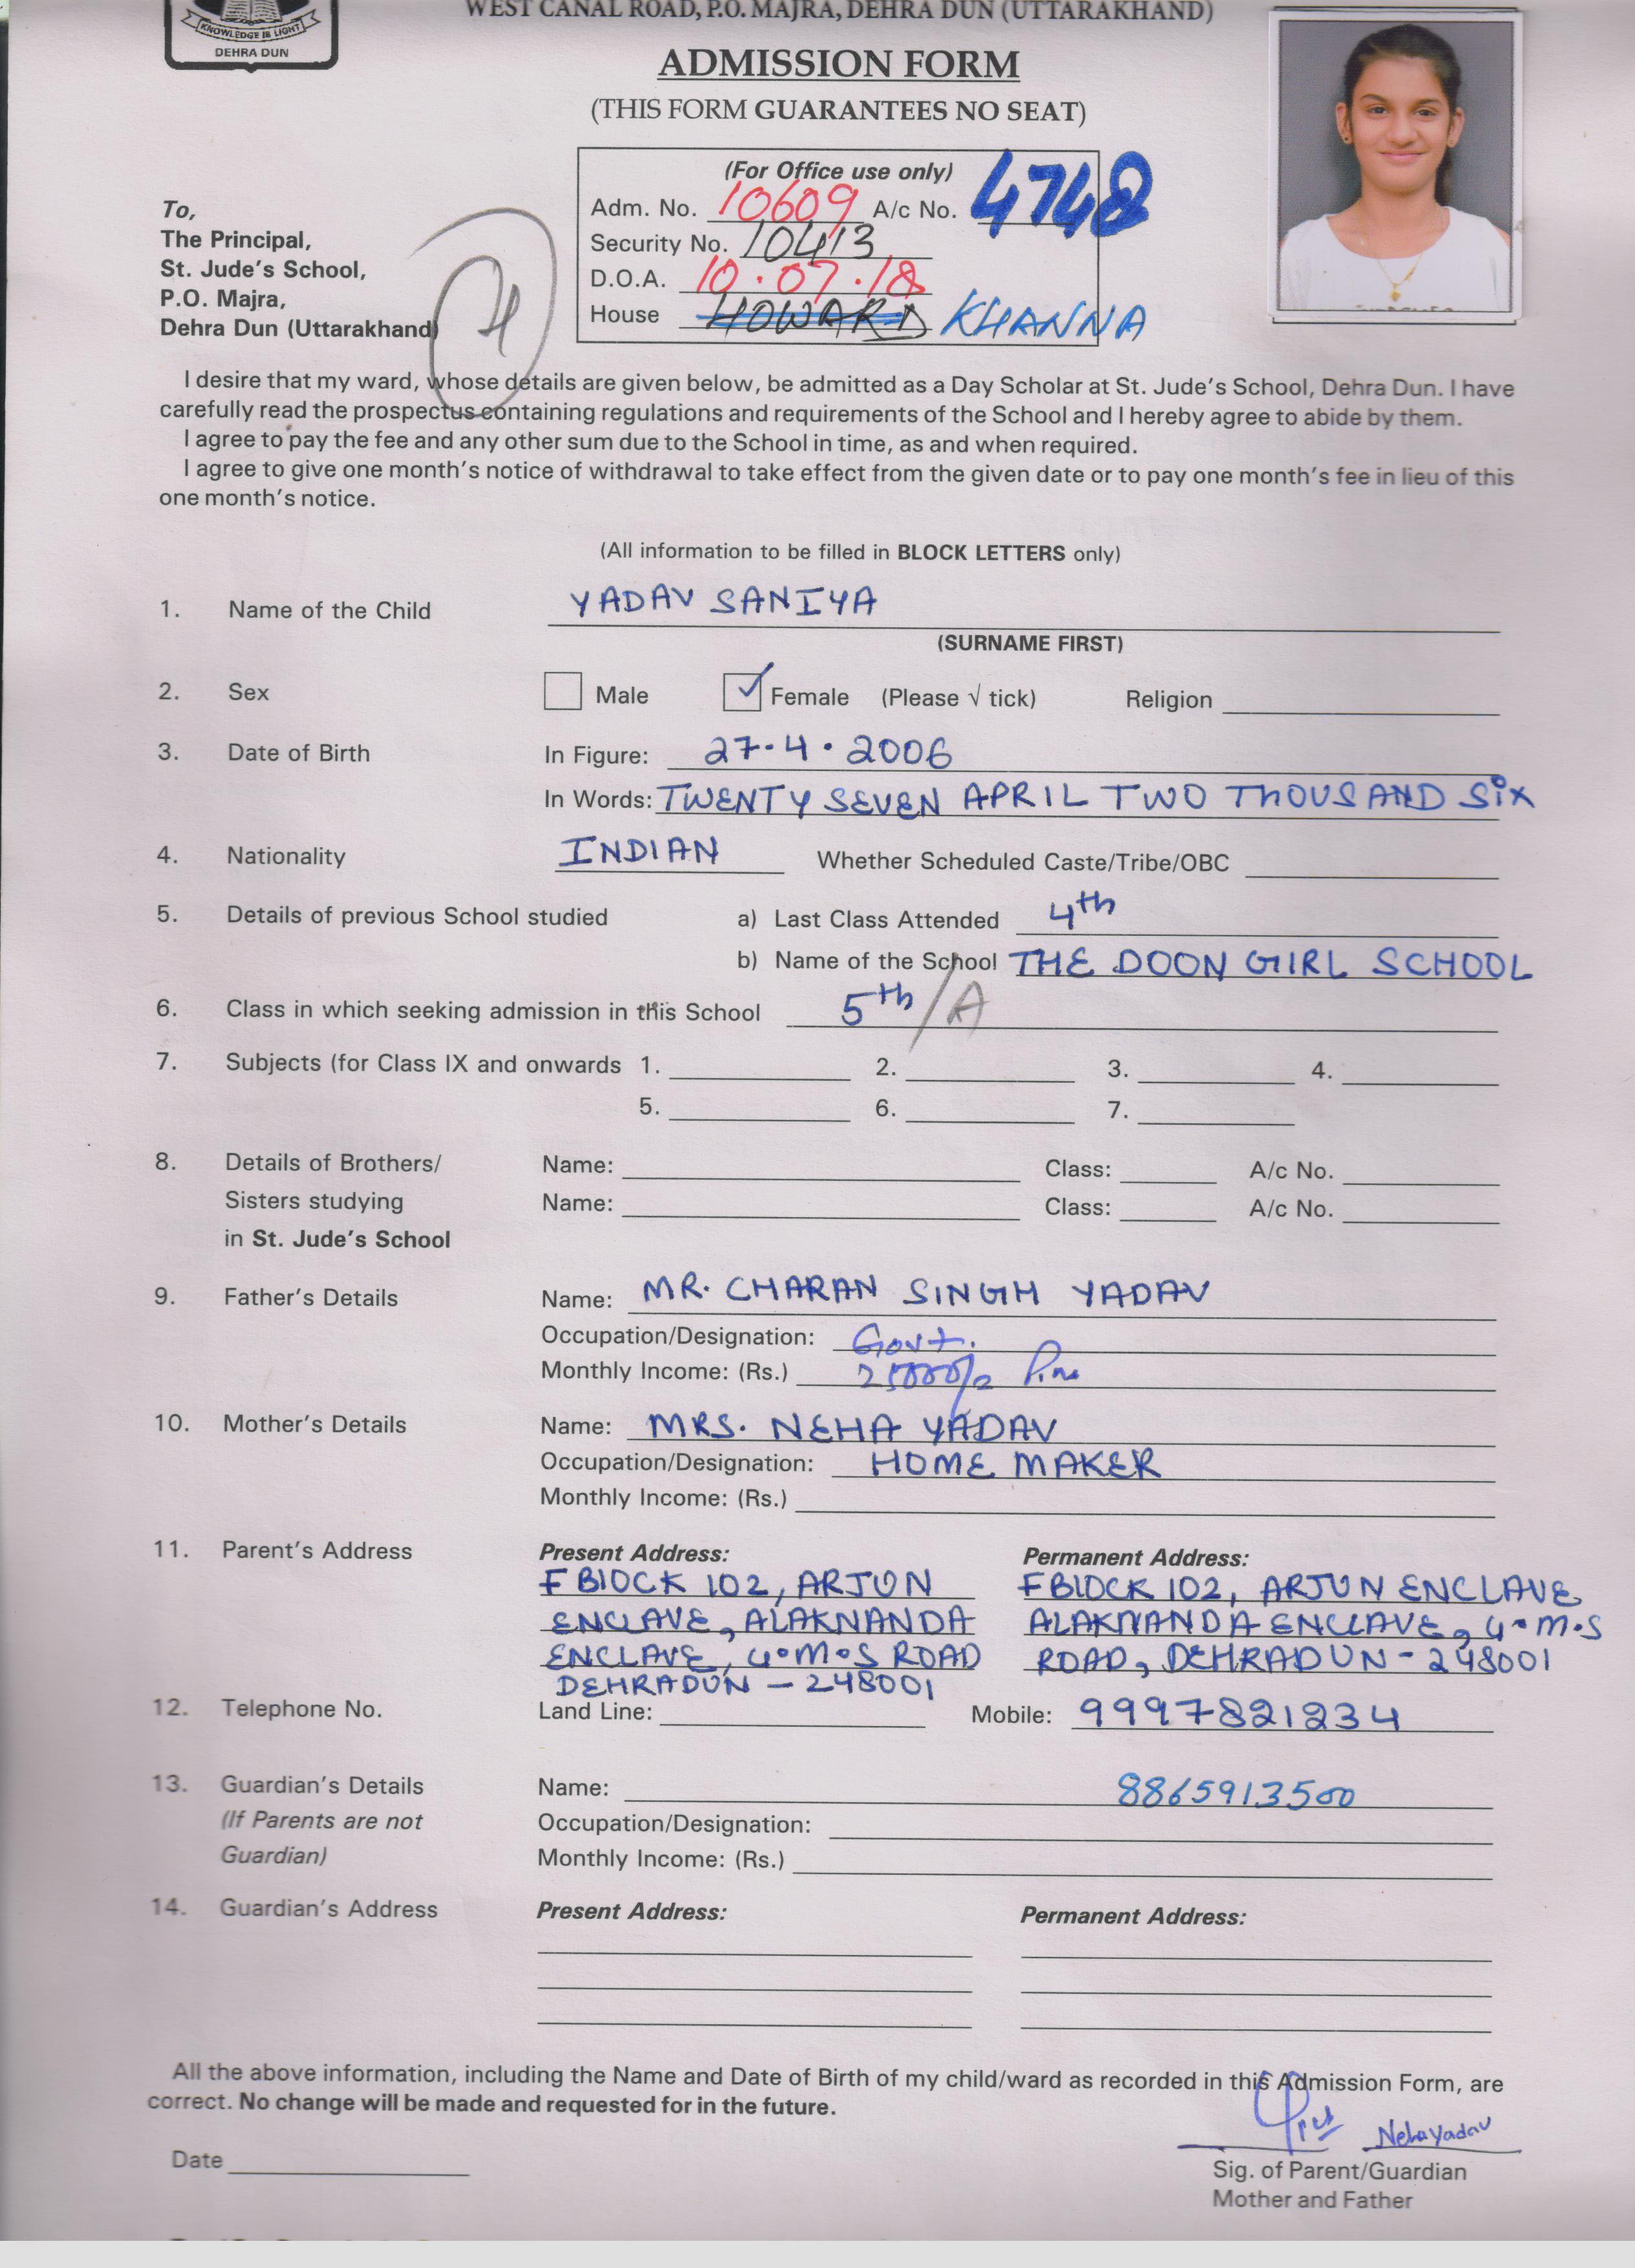 WEST CANAL ROAD, P.O. MAJRA, DEHRA DUN (UTTARAKHAND)
KNOWLEDGE IS LIGHT
DEHRA DUN
ADMISSION FORM
(THIS FORM GUARANTEES NO SEAT)
(For Office use only)
Adm. No. 10609 A/c No. 4748
Security No. 10413
D.O.A. 10.07.18
House HOWARD KHANNA
To,
The Principal,
St. Jude's School,
P.O. Majra,
Dehra Dun (Uttarakhand)
I desire that my ward, whose details are given below, be admitted as a Day Scholar at St. Jude's School, Dehra Dun. I have
carefully read the prospectus containing regulations and requirements of the School and I hereby agree to abide by them.
I agree to pay the fee and any other sum due to the School in time, as and when required.
I agree to give one month's notice of withdrawal to take effect from the given date or to pay one month's fee in lieu of this
one month's notice.
(All information to be filled in BLOCK LETTERS only)
1. Name of the Child YADAV SANIYA
(SURNAME FIRST)
2. Sex Male ✓ Female (Please √ tick) Religion
3. Date of Birth In Figure: 27.4.2006
In Words: TWENTY SEVEN APRIL TWO THOUSAND SIX
4. Nationality INDIAN Whether Scheduled Caste/Tribe/OBC
5. Details of previous School studied a) Last Class Attended 4th
b) Name of the School THE DOON GIRL SCHOOL
6. Class in which seeking admission in this School 5th/A
7. Subjects (for Class IX and onwards 1. 2. 3. 4.
5. 6. 7.
8. Details of Brothers/ Name: Class: A/c No.
Sisters studying Name: Class: A/c No.
in St. Jude's School
9. Father's Details Name: MR. CHARAN SINGH YADAV
Occupation/Designation: Govt.
Monthly Income: (Rs.)
10. Mother's Details Name: MRS. NEHA YADAV
Occupation/Designation: HOME MAKER
Monthly Income: (Rs.)
11. Parent's Address Present Address: Permanent Address:
F BLOCK 102, ARJUN F BLOCK 102, ARJUN ENCLAVE,
ENCLAVE, ALAKNANDA ALAKNANDA ENCLAVE, G.M.S
ENCLAVE, G.M.S ROAD ROAD, DEHRADUN - 248001
DEHRADUN - 248001
12. Telephone No. Land Line: Mobile: 9997821234
13. Guardian's Details Name: 8865913500
(If Parents are not Occupation/Designation:
Guardian) Monthly Income: (Rs.)
14. Guardian's Address Present Address: Permanent Address:
All the above information, including the Name and Date of Birth of my child/ward as recorded in this Admission Form, are
correct. No change will be made and requested for in the future.
Neha Yadav
Date
Sig. of Parent/Guardian
Mother and Father